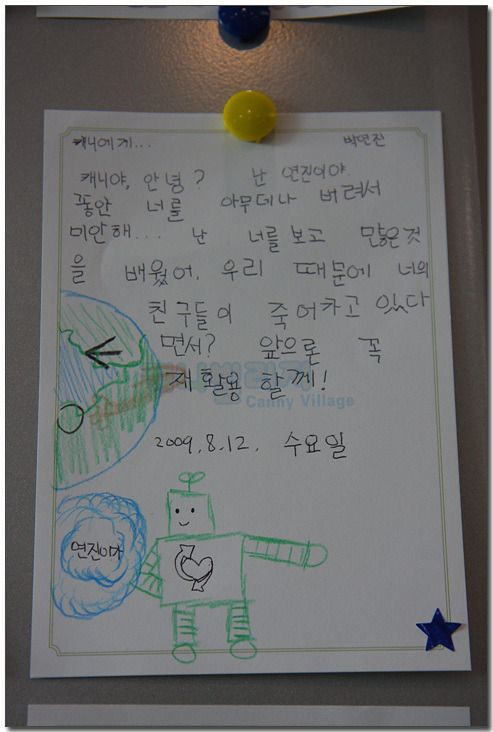 캐니에게... 박연진
캐니야, 안녕? 난 연진이야.
똥안 너를 아무데나 버려서
미안해... 난 너를 보고 많은것
을 배웠어. 우리 때문에 너의
친구들이 죽어가고 있다
면서? 앞으론 꼭
재활용 할께!
Canny Village
2009.8.12. 수요일
연진이가